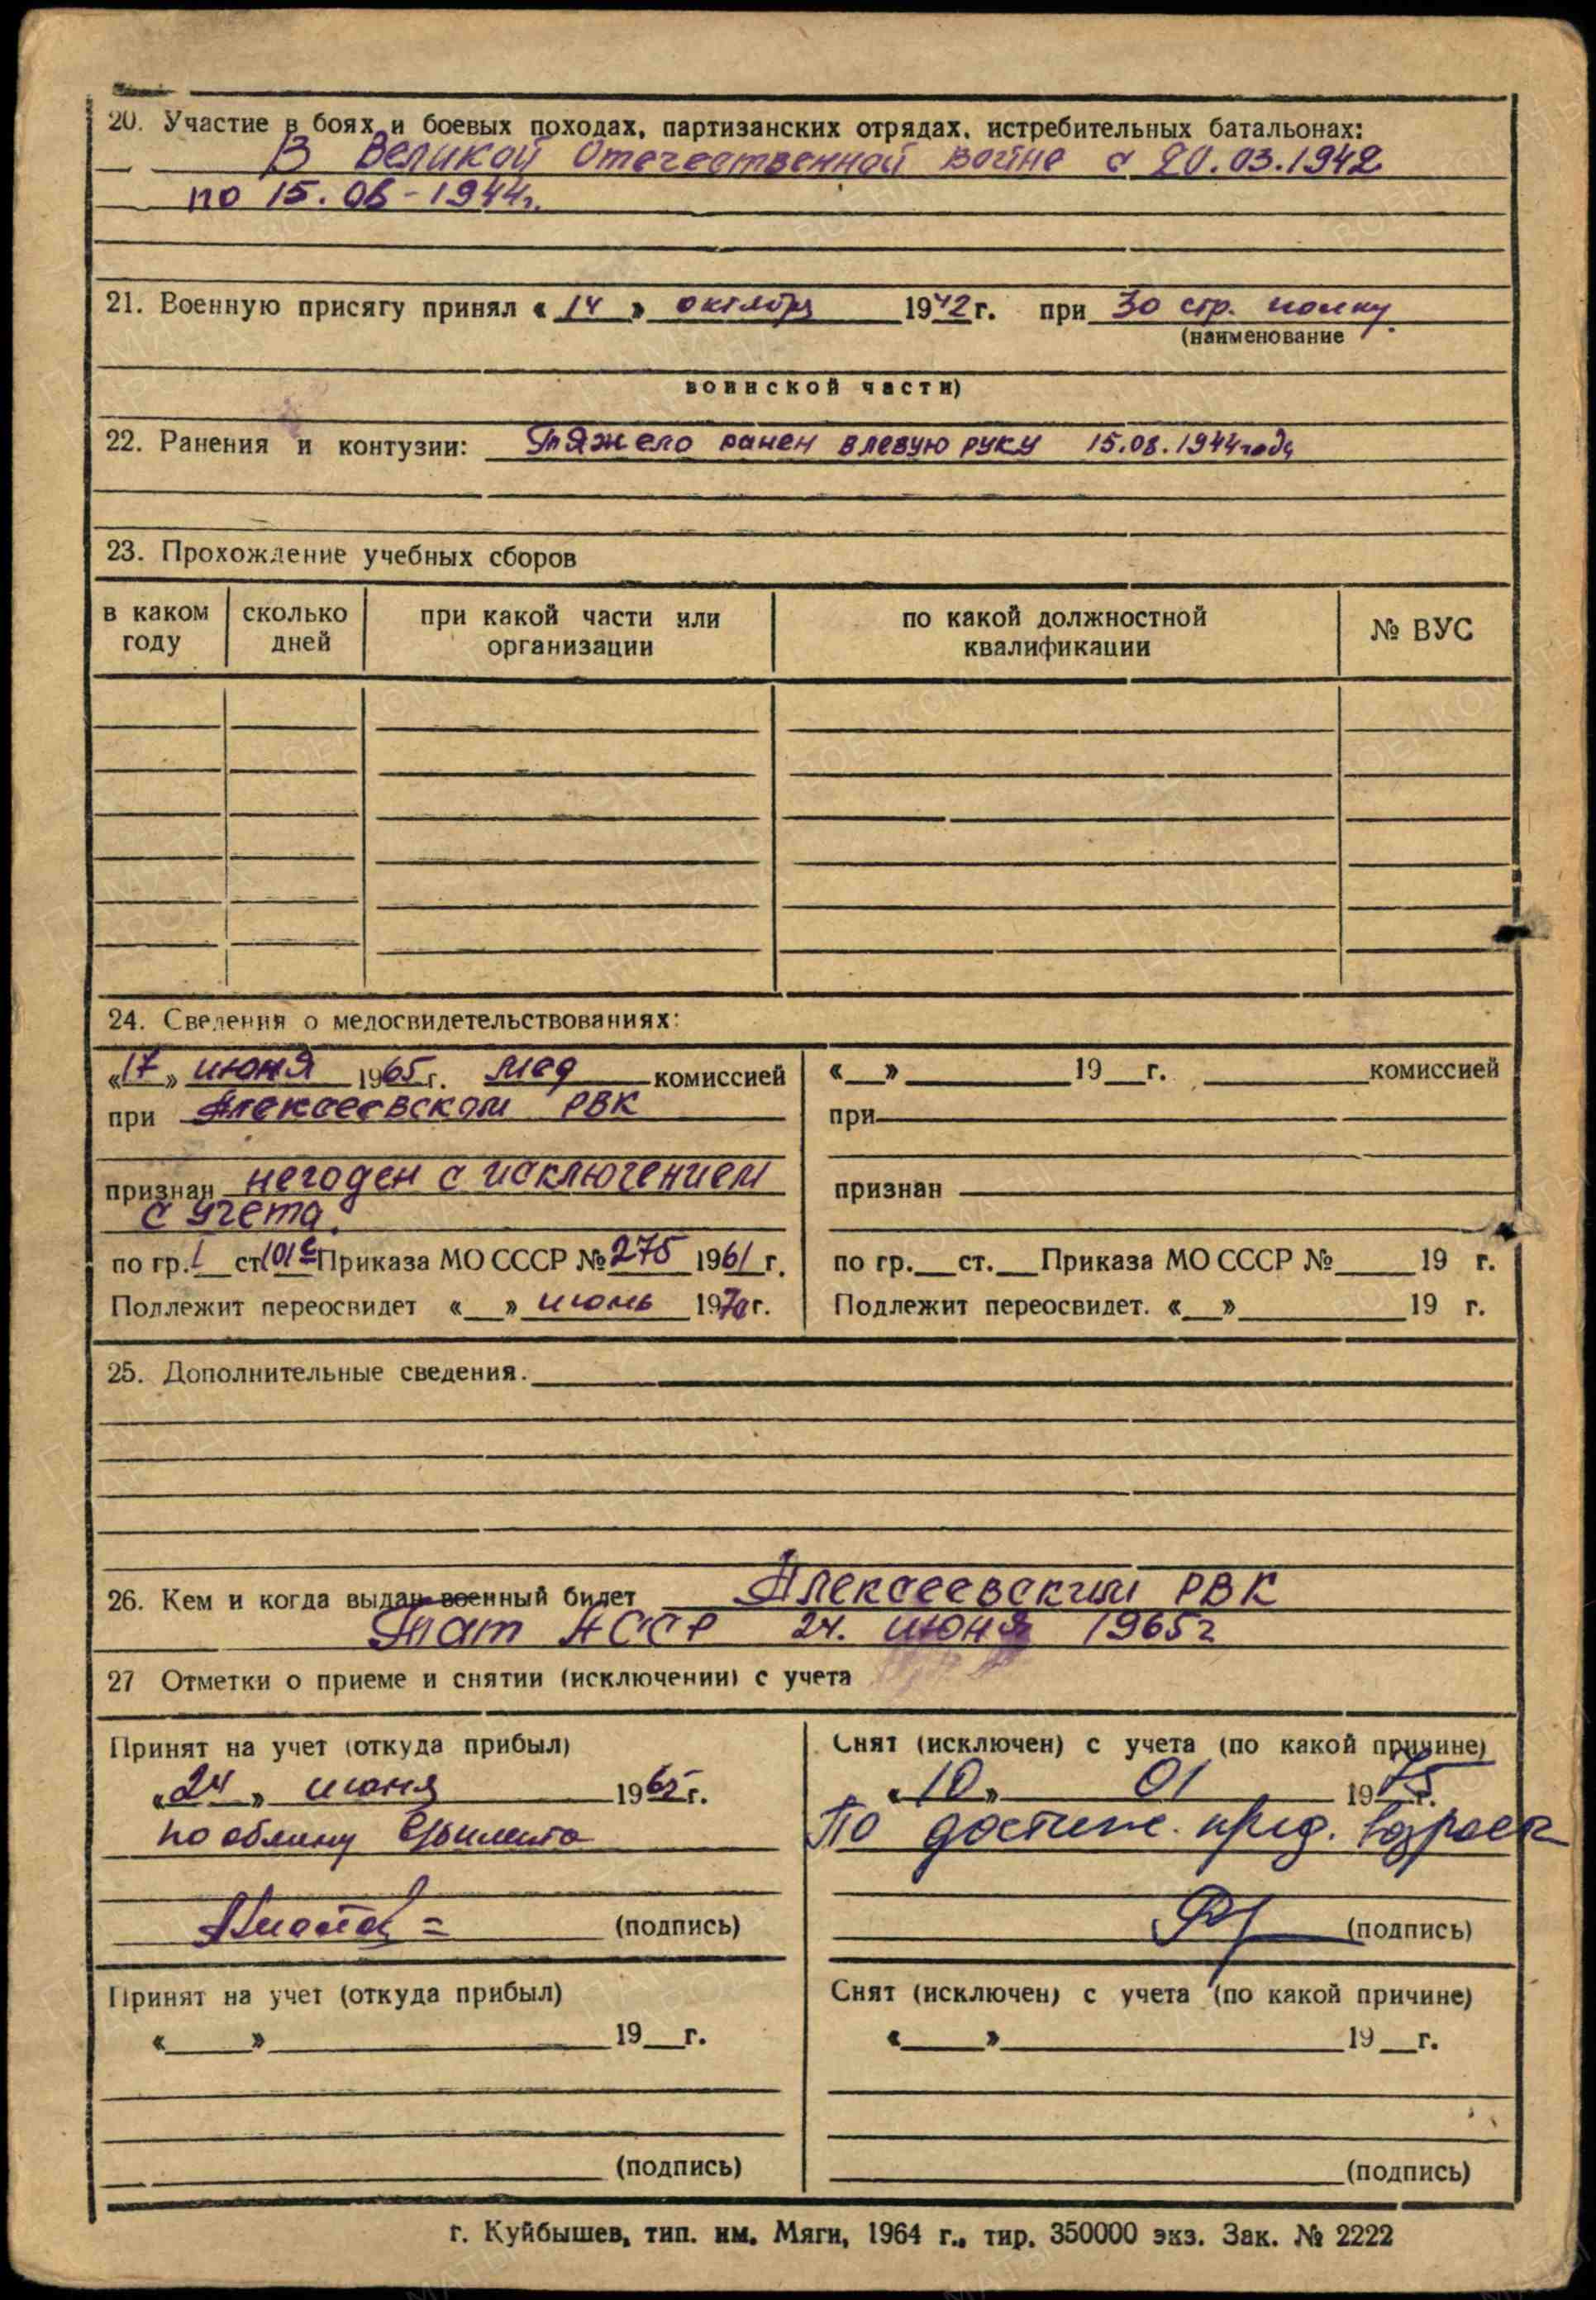 20. Участие в боях и боевых походах, партизанских отрядах, истребительных батальонах:
В Великой Отечественной войне с 20.03.1942
по 15.08-1944г.
21. Военную присягу принял «14» октября 1942г. при 30 стр. полку
(наименование
воинской части)
22. Ранения и контузии: Тяжело ранен в левую руку 15.08.1944 года
23. Прохождение учебных сборов
в каком году сколько дней при какой части или организации по какой должностной квалификации № ВУС
24. Сведения о медосвидетельствованиях:
«17» июня 1965г. мед комиссией
при Алексеевском РВК
признан негоден с исключением
с учета.
по гр. I ст. 101с Приказа МО СССР № 275 1961 г.
Подлежит переосвидет «__» июнь 1970г.
«__» 19__г. комиссией
при
признан
по гр.__ст.__Приказа МО СССР №____19 г.
Подлежит переосвидет. «__»____19 г.
25. Дополнительные сведения.
26. Кем и когда выдан военный билет Алексеевским РВК
Тат АССР 24. июня 1965г
27 Отметки о приеме и снятии (исключении) с учета
Принят на учет (откуда прибыл)
«24» июня 1965г.
по обмену билета
(подпись)
Снят (исключен) с учета (по какой причине)
«10» 01 1975г.
По достиж. пред. возраста
(подпись)
Принят на учет (откуда прибыл)
«__» 19__г.
(подпись)
Снят (исключен) с учета (по какой причине)
«__» 19__г.
(подпись)
г. Куйбышев, тип. им. Мяги, 1964 г., тир. 350000 экз. Зак. № 2222